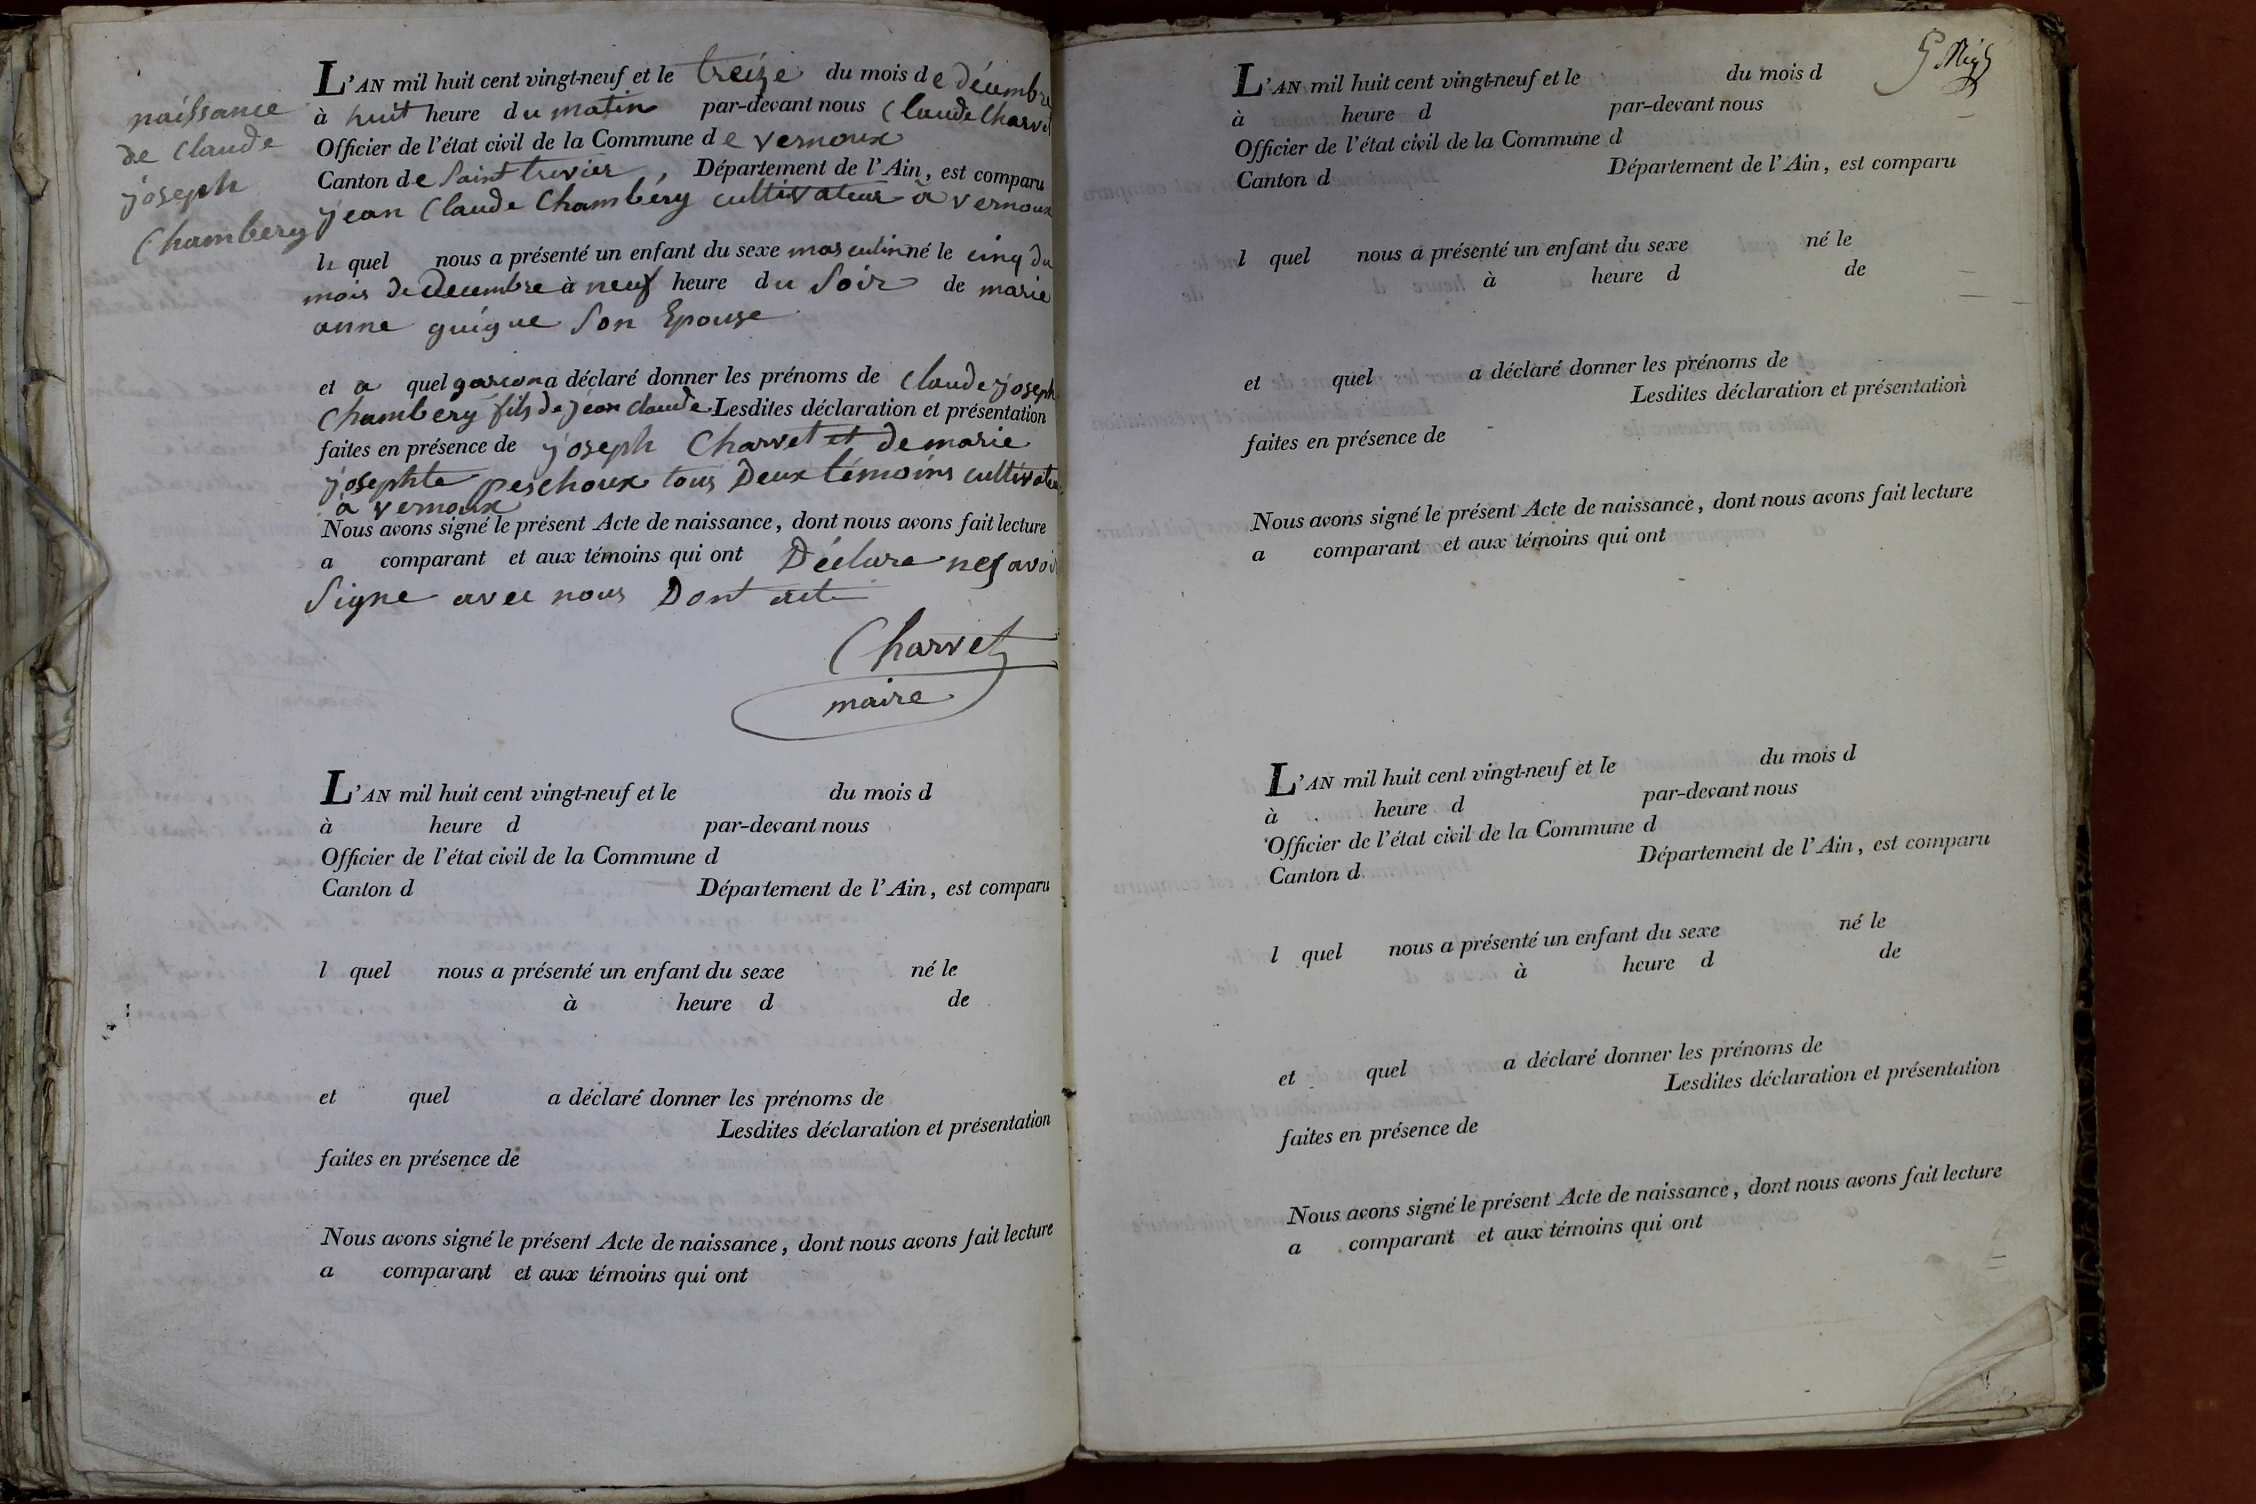 naissance
de Claude
joseph
Chambery
L'AN mil huit cent vingt-neuf et le treize du mois de décembre
à huit heure du matin par-devant nous Claude Charvet
Officier de l'état civil de la Commune de vernoux
Canton de Saint trivier, Département de l'Ain, est comparu
jean Claude Chambéry cultivateur à vernoux
le quel nous a présenté un enfant du sexe masculin né le cinq du
mois de Decembre à neuf heure du Soir de marie
anne guigue Son Epouse
et a quel garcon a déclaré donner les prénoms de Claude joseph
Chambéry fils de jean claude Lesdites déclaration et présentation
faites en présence de joseph Charvet et de marie
josephte peschoux tous Deux témoins cultivateur
à vernoux
Nous avons signé le présent Acte de naissance, dont nous avons fait lecture
a comparant et aux témoins qui ont Déclare ne savoir
Signe avec nous Dont acte
Charvet
maire
L'AN mil huit cent vingt-neuf et le du mois d
à heure d par-devant nous
Officier de l'état civil de la Commune d
Canton d Département de l'Ain, est comparu
l quel nous a présenté un enfant du sexe né le
à heure d de
et quel a déclaré donner les prénoms de
Lesdites déclaration et présentation
faites en présence de
Nous avons signé le présent Acte de naissance, dont nous avons fait lecture
a comparant et aux témoins qui ont
L'AN mil huit cent vingt-neuf et le du mois d
à heure d par-devant nous
Officier de l'état civil de la Commune d
Canton d Département de l'Ain, est comparu
l quel nous a présenté un enfant du sexe né le
à heure d de
et quel a déclaré donner les prénoms de
Lesdites déclaration et présentation
faites en présence de
Nous avons signé le présent Acte de naissance, dont nous avons fait lecture
a comparant et aux témoins qui ont
L'AN mil huit cent vingt-neuf et le du mois d
à heure d par-devant nous
Officier de l'état civil de la Commune d
Canton d Département de l'Ain, est comparu
l quel nous a présenté un enfant du sexe né le
à heure d de
et quel a déclaré donner les prénoms de
Lesdites déclaration et présentation
faites en présence de
Nous avons signé le présent Acte de naissance, dont nous avons fait lecture
a comparant et aux témoins qui ont